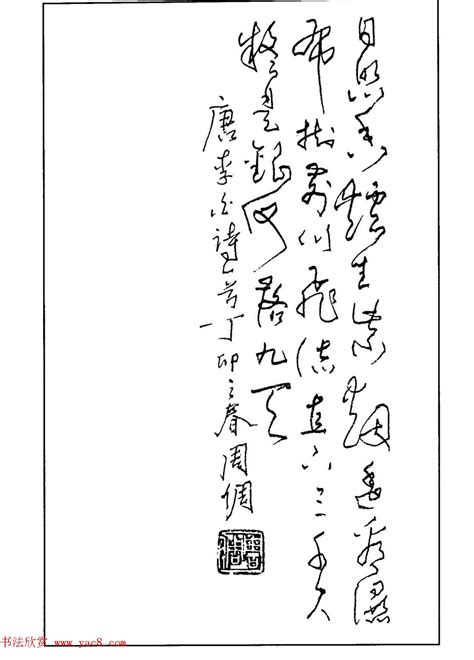 日照香爐生紫烟遥看瀑
布挂前川飛流直下三千尺
疑是銀河落九天
唐李白詩一首丁卯之春周倜
书法欣赏 www.yac8.com